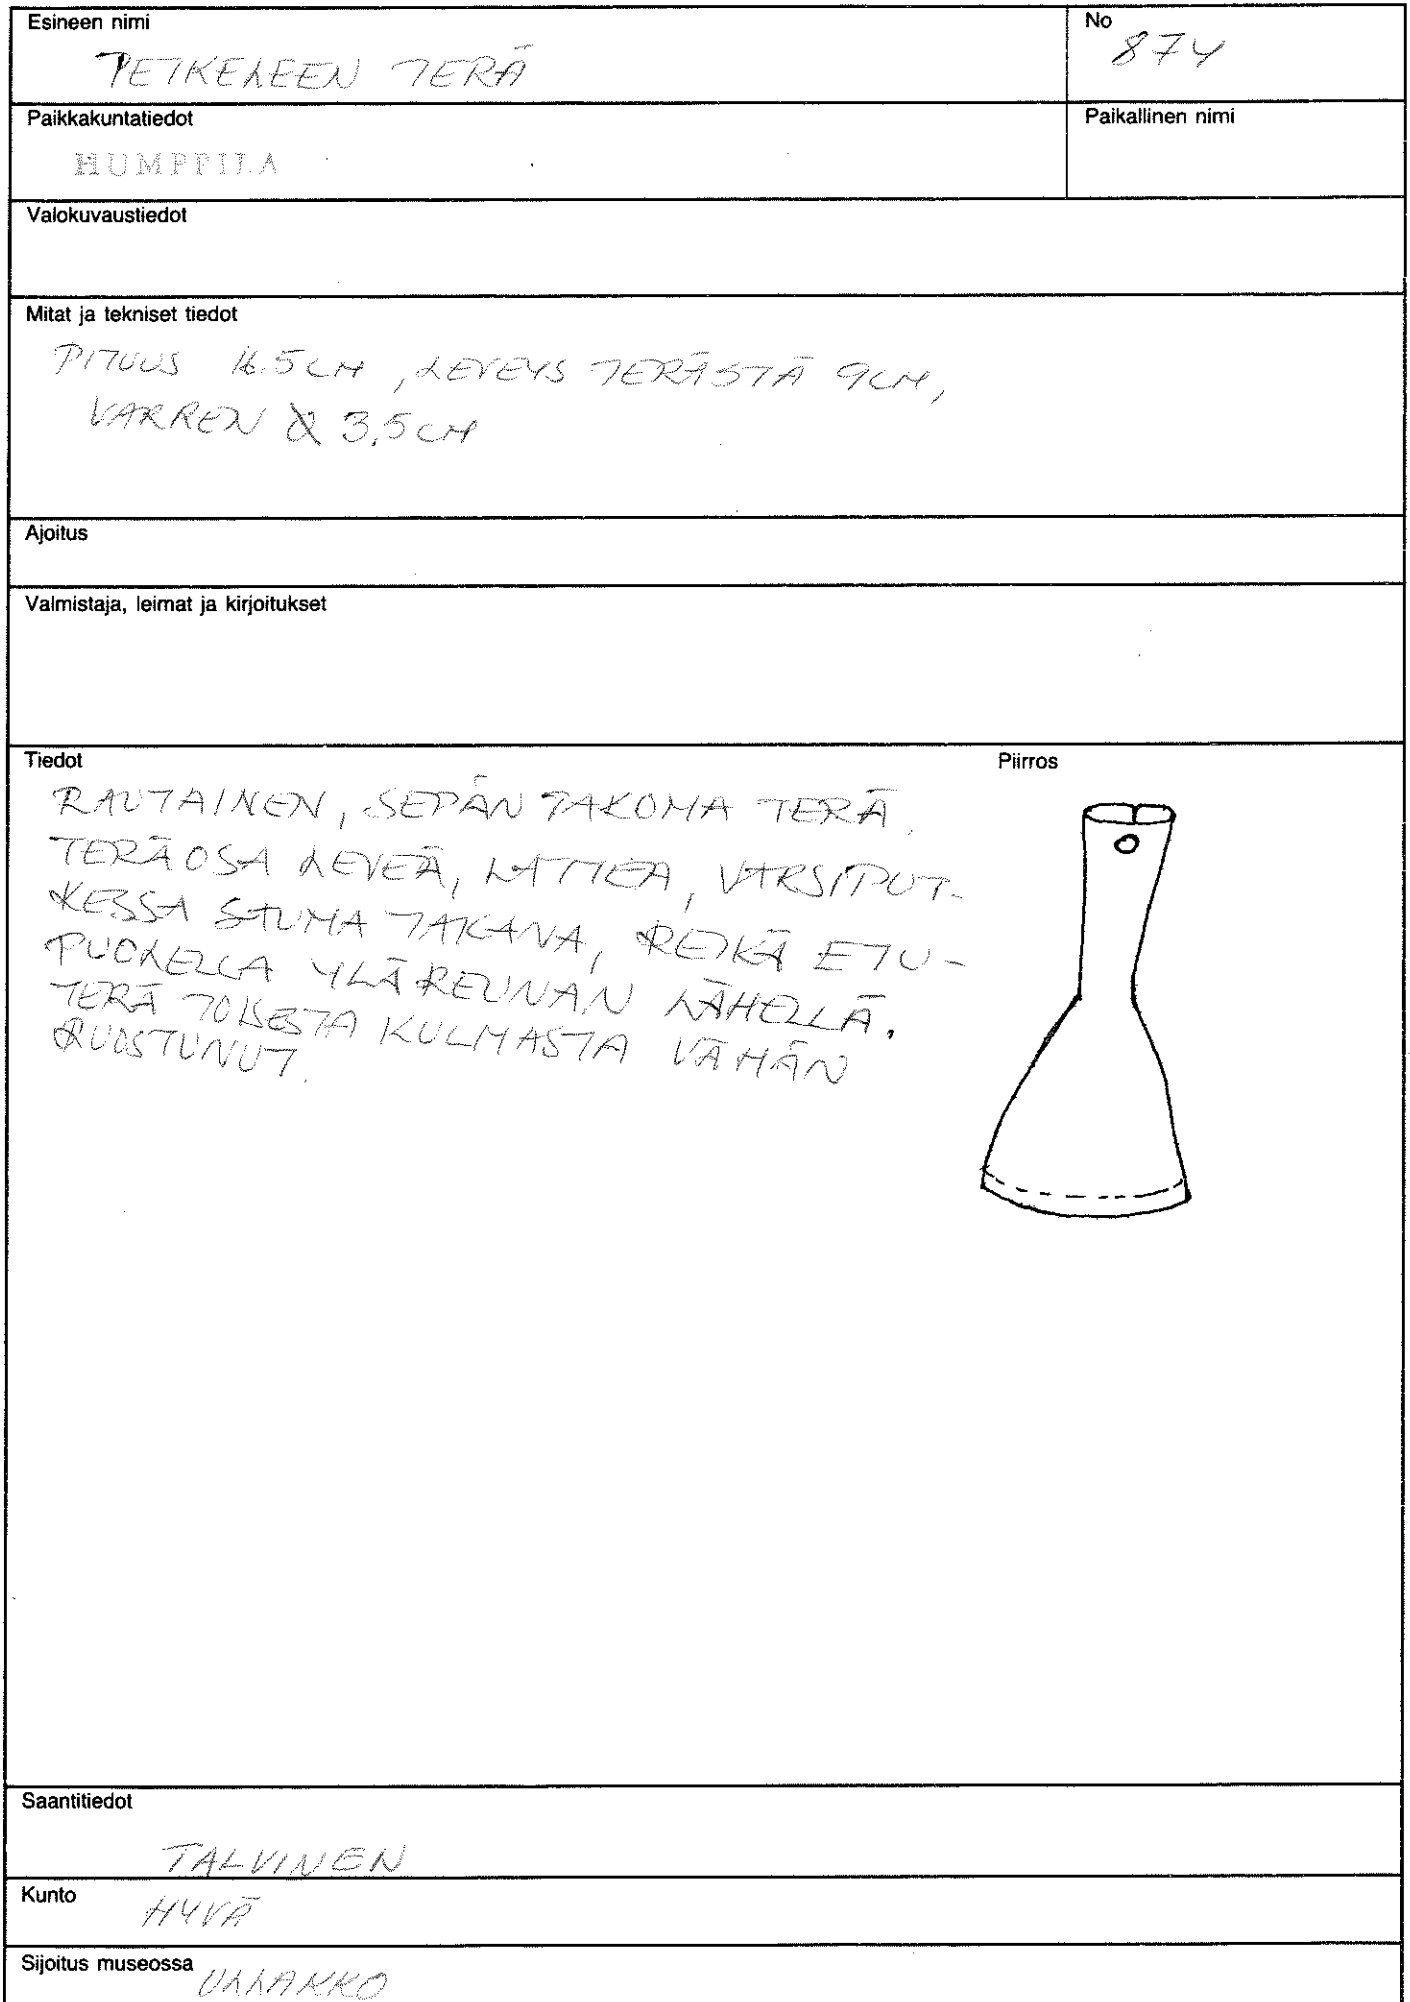 Esineen nimi
PETKELEEN TERÄ
No
874
Paikkakuntatiedot
HUMPPILA
Paikallinen nimi
Valokuvaustiedot
Mitat ja tekniset tiedot
PITUUS 16.5 CM, LEVEYS TERÄSTÄ 9CM,
VARREN Ø 3,5 CM
Ajoitus
Valmistaja, leimat ja kirjoitukset
Tiedot
Piirros
RAUTAINEN, SEPÄN TAKOMA TERÄ.
TERÄOSA LEVEÄ, LATTEA, VARSIPUT-
KESSA SAUMA TAKANA, REIKÄ ETU-
PUOLELLA YLÄREUNAN LÄHELLÄ.
TERÄ TOISESTA KULMASTA VÄHÄN
RUOSTUNUT.
Saantitiedot
TALVINEN
Kunto
HYVÄ
Sijoitus museossa
ULLAKKO